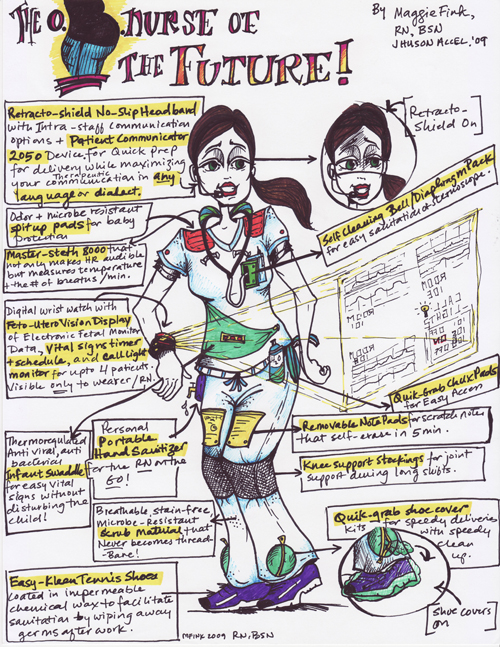 THE O.B. NURSE OF
THE FUTURE!
By Maggie Fink,
RN, BSN
JHUSON ACCEL. '09
Retracto-shield No-Slip Headband
with Intra-staff communication
options + Patient Communicator
2050 Device, for Quick prep
for delivery while maximizing
your therapeutic communication in any
language or dialect.
Retracto-
Shield On
Odor + microbe resistant
spit up pads for baby
protection
Self Cleaning Bell/Diaphragm Pack
for easy sanitation of stethoscope.
Master-Steth 8000 that
not only makes HR audible
but measures temperature
+ the # of breaths/min.
Digital wrist watch with
Feto-Utero Vision Display
of Electronic Fetal Monitor
Data, Vital signs timer
+ schedule, and call light
monitor for up to 4 patients.
Visible only to wearer/RN.
Quik-Grab Chux Pads
for Easy Access
Removable Note Pads for scratch notes
that self-erase in 5 min.
Thermoregulated
Anti viral, anti
bacterial
Infant Swaddle
for easy Vital
signs without
disturbing the
child!
Personal
Portable
Hand Sanitizer
for the RN on the
GO!
Knee support stockings for joint
support during long shifts.
Breathable, stain-free,
microbe-Resistant
Scrub Material that
Never becomes thread-
Bare!
Quik-grab shoe cover
Kits for speedy deliveries
with speedy
clean
up.
Easy-Kleen Tennis Shoes
coated in impermeable
chemical wax to facilitate
sanitation by wiping away
germs after work.
Shoe covers
on
MFINK 2009 RN, BSN